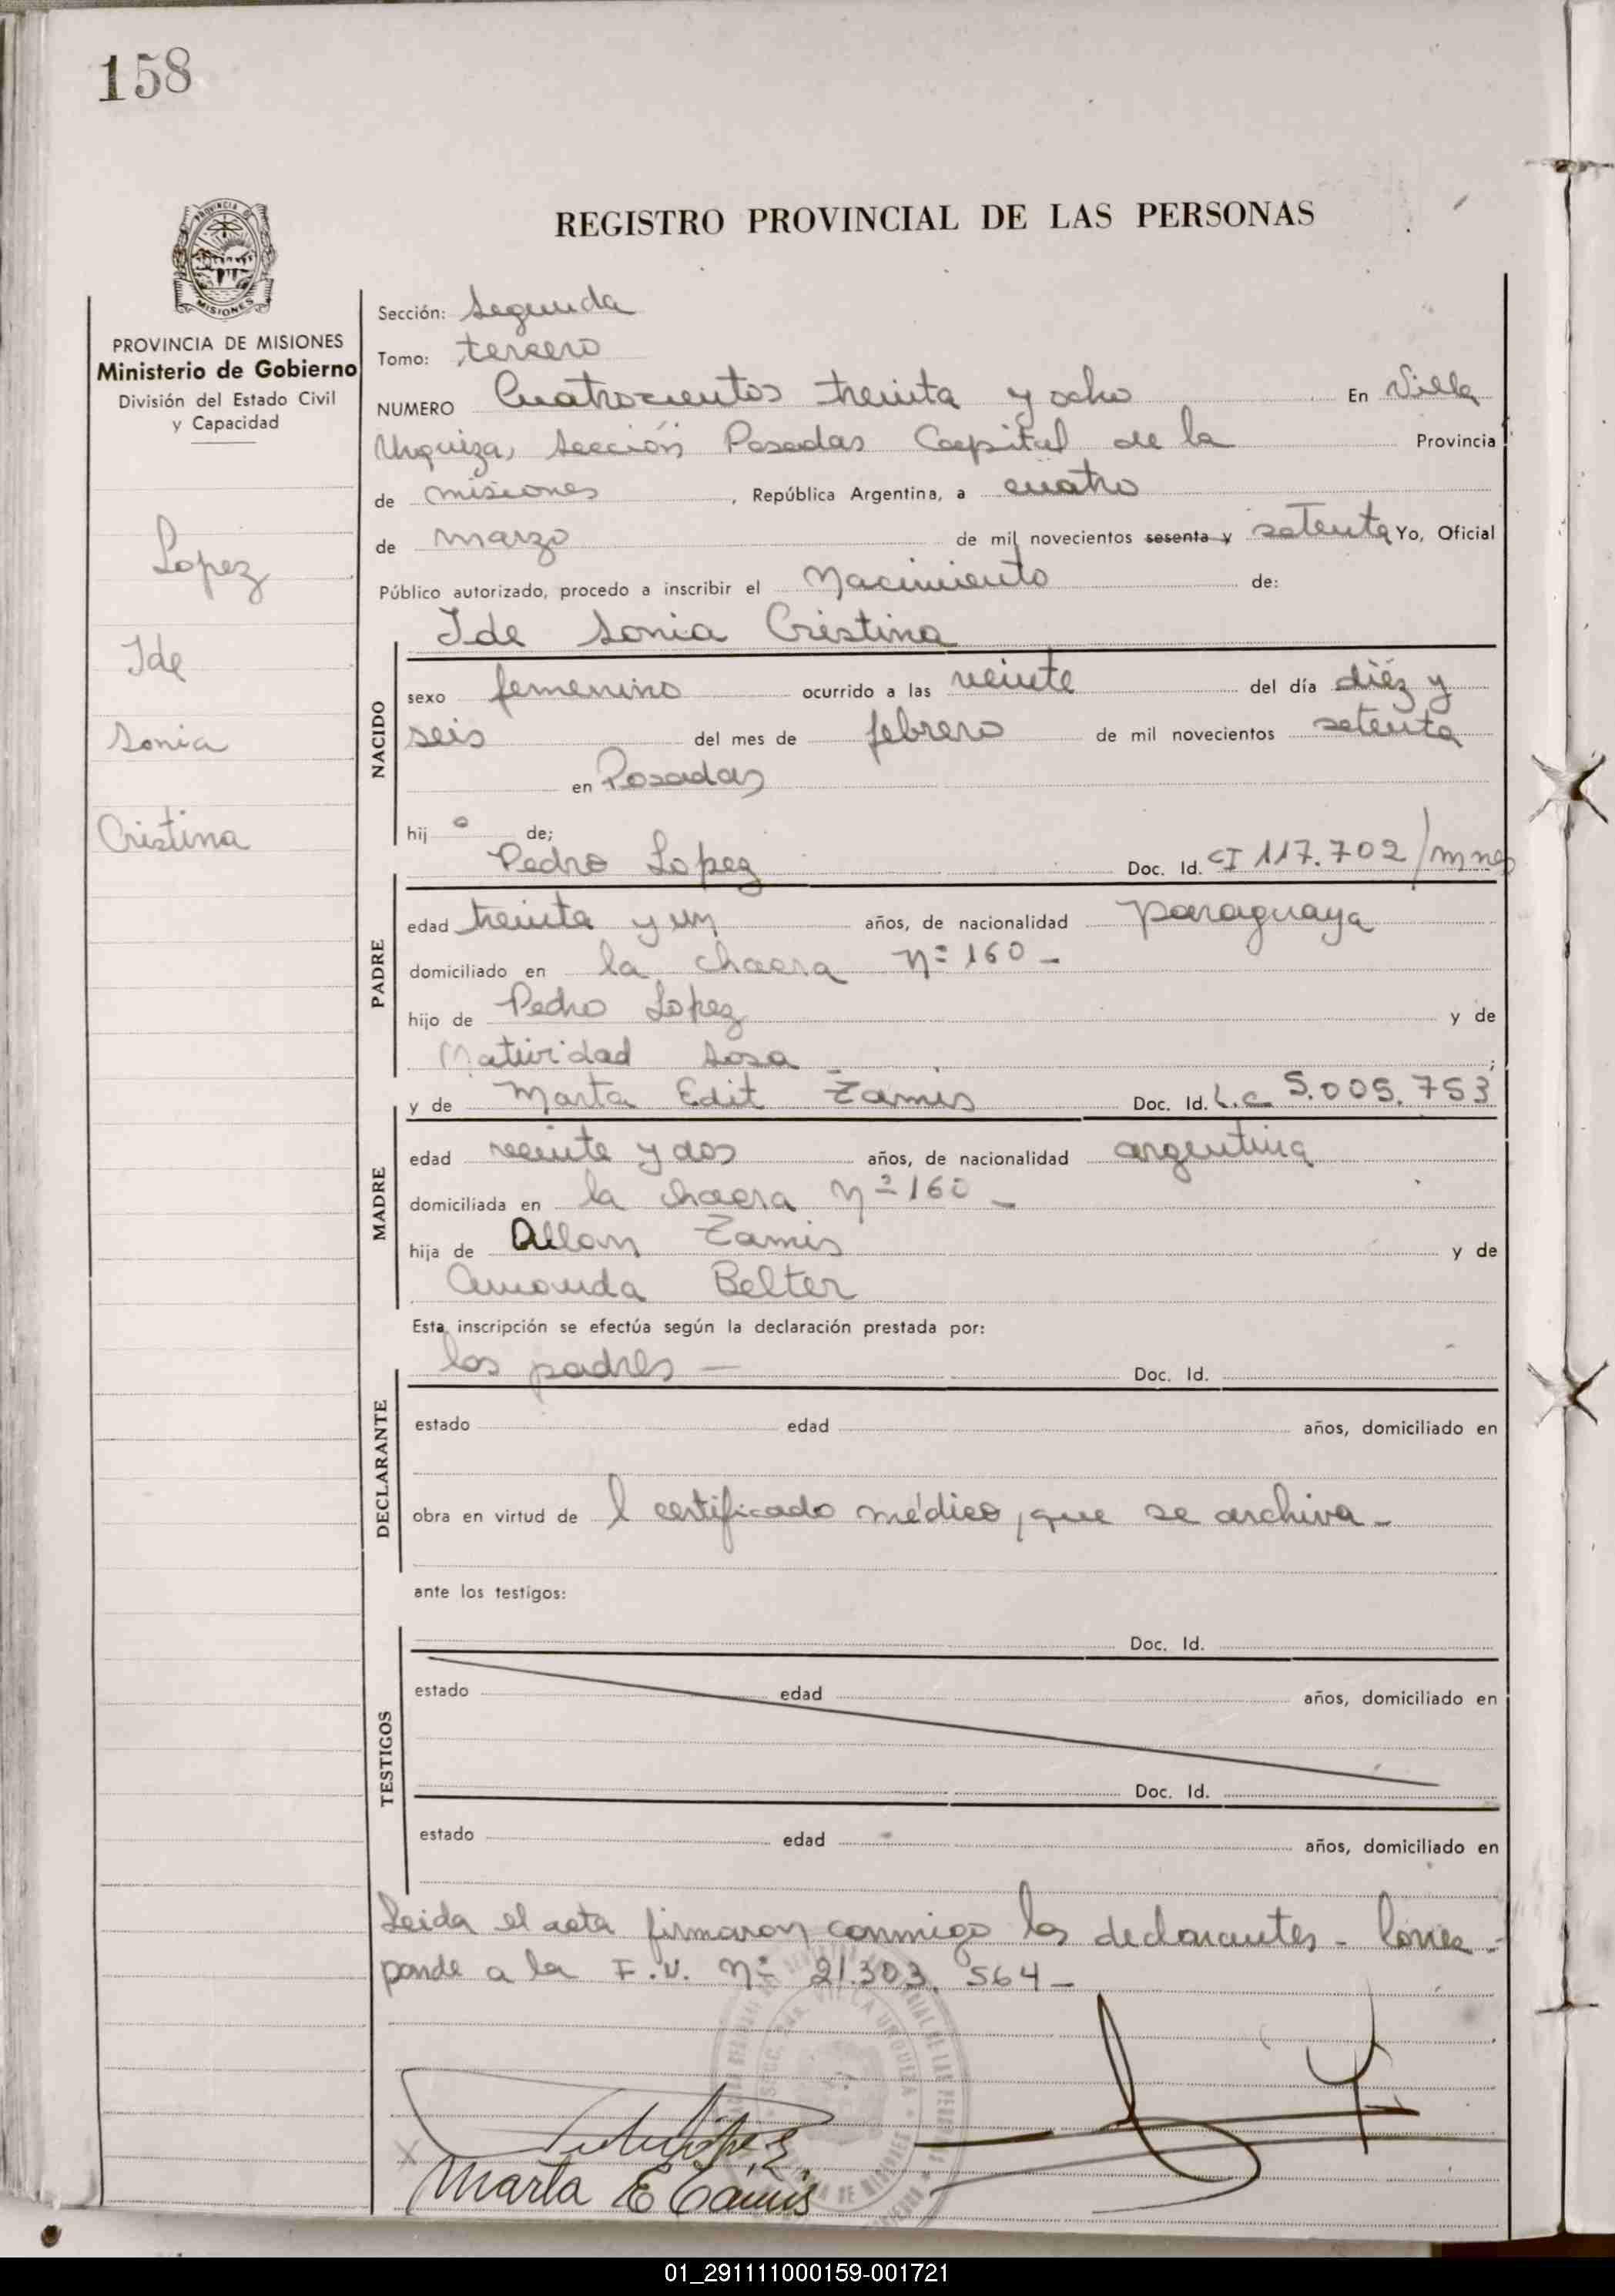 158
REGISTRO PROVINCIAL DE LAS PERSONAS
PROVINCIA DE MISIONES
PROVINCIA DE MISIONES
Ministerio de Gobierno
División del Estado Civil
y Capacidad
Lopez
Ide
Sonia
Cristina
Sección: Segunda
Tomo: tercero
NUMERO Cuatrocientos treinta y ocho En Villa
Urquiza, Sección Posadas Capital de la Provincia
de misiones, República Argentina, a cuatro
de marzo de mil novecientos sesenta y setenta Yo, Oficial
Público autorizado, procedo a inscribir el Nacimiento de:
Ide Sonia Cristina
NACIDO
sexo femenino ocurrido a las veinte del día diéz y
seis del mes de febrero de mil novecientos setenta
en Posadas
hij a de;
Pedro Lopez Doc. Id. CI 117.702/mnes
PADRE
edad treinta y un años, de nacionalidad paraguaya
domiciliado en la chacra nº 160 -
hijo de Pedro Lopez y de
Natividad Sosa;
y de Marta Edit Zamis Doc. Id. L.c 5.005.753
MADRE
edad veinte y dos años, de nacionalidad argentina
domiciliada en la chacra nº 160 -
hija de Allan Zamis y de
Amanda Belter
Esta inscripción se efectúa según la declaración prestada por:
los padres - Doc. Id.
DECLARANTE
estado edad años, domiciliado en
obra en virtud de l certificado médico, que se archiva -
ante los testigos:
Doc. Id.
TESTIGOS
estado edad años, domiciliado en
Doc. Id.
estado edad años, domiciliado en
Leida el acta firmaron conmigo los declarantes - Corres-
ponde a la F.U. nº 21.303.564 -
Marta E Zamis
01_291111000159-001721